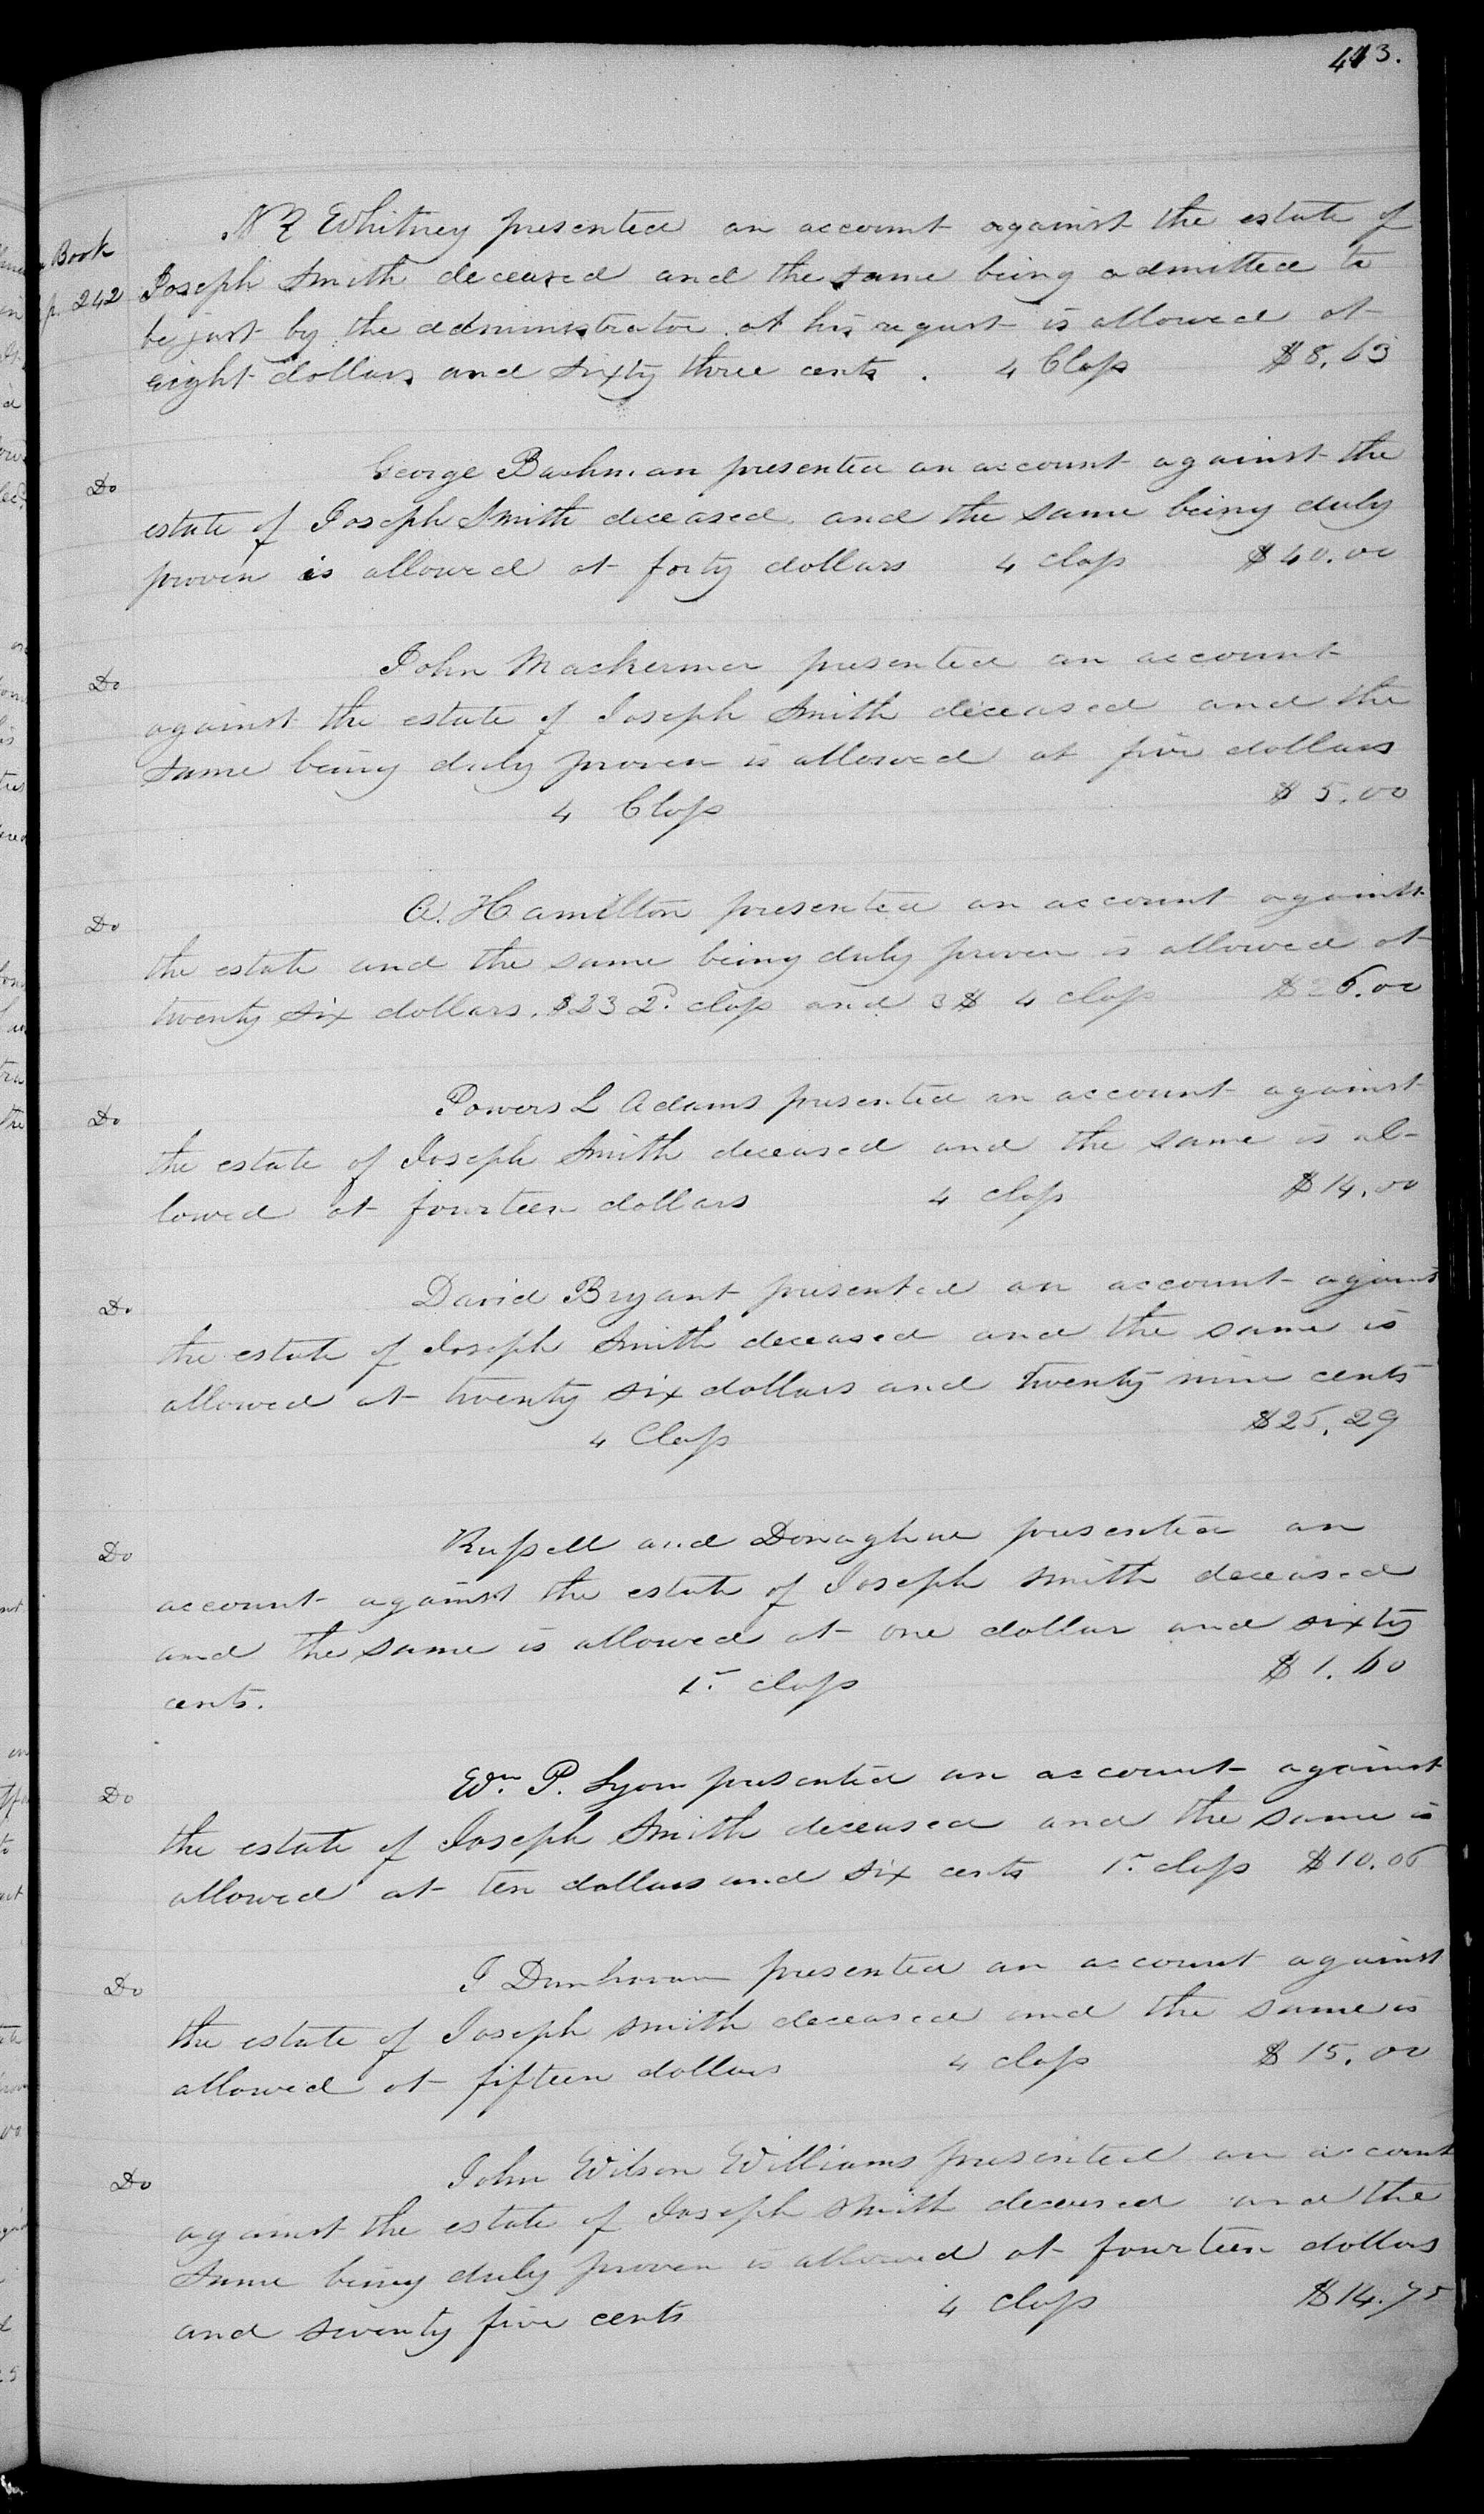 413.
Book
p. 242
N Z Whitney presented an account against the estate of
Joseph Smith deceased and the same being admitted to
be just by the administrator at his request is allowed at
eight dollars and sixty three cents . 4 Class $8.63
Do
George Bachman presented an account against the
estate of Joseph Smith deceased and the same being duly
proven is allowed at forty dollars 4 class $40.00
Do
John Mackermer presented an account
against the estate of Joseph Smith deceased and the
same being duly proven is allowed at five dollars
4 Class $5.00
Do
A. Hamilton presented an account against
the estate and the same being duly proven is allowed at
twenty six dollars. $23 2d. class and 3$ 4 class $26.00
Do
Powers L Adams presented an account against
the estate of Joseph Smith deceased and the same is al-
lowed at fourteen dollars 4 class $14.00
Do
David Bryant presented an account against
the estate of Joseph Smith deceased and the same is
allowed at twenty six dollars and twenty nine cents
4 Class $26.29
Do
Russell and Donaghue presented an
account against the estate of Joseph Smith deceased
and the same is allowed at one dollar and sixty
cents. 1st class $1.60
Do
Wm. P. Lyon presented an account against
the estate of Joseph Smith deceased and the same is
allowed at ten dollars and six cents 1st class $10.06
Do
J presented an account against
the estate of Joseph Smith deceased and the same is
allowed at fifteen dollars 4 class $15.00
Do
John Wilson Williams presented an account
against the estate of Joseph Smith deceased and the
same being duly proven is allowed at fourteen dollars
and seventy five cents 4 class $14.75